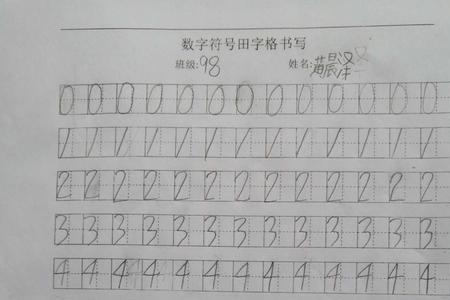 数字符号田字格书写
班级:98 姓名:黄晨泽
0 0 0 0 0 0 0 0 0 0 0 0 0
1 1 1 1 1 1 1 1 1 1 1 1 1
2 2 2 2 2 2 2 2 2 2 2 2 2
3 3 3 3 3 3 3 3 3 3 3 3 3
4 4 4 4 4 4 4 4 4 4 4 4 4